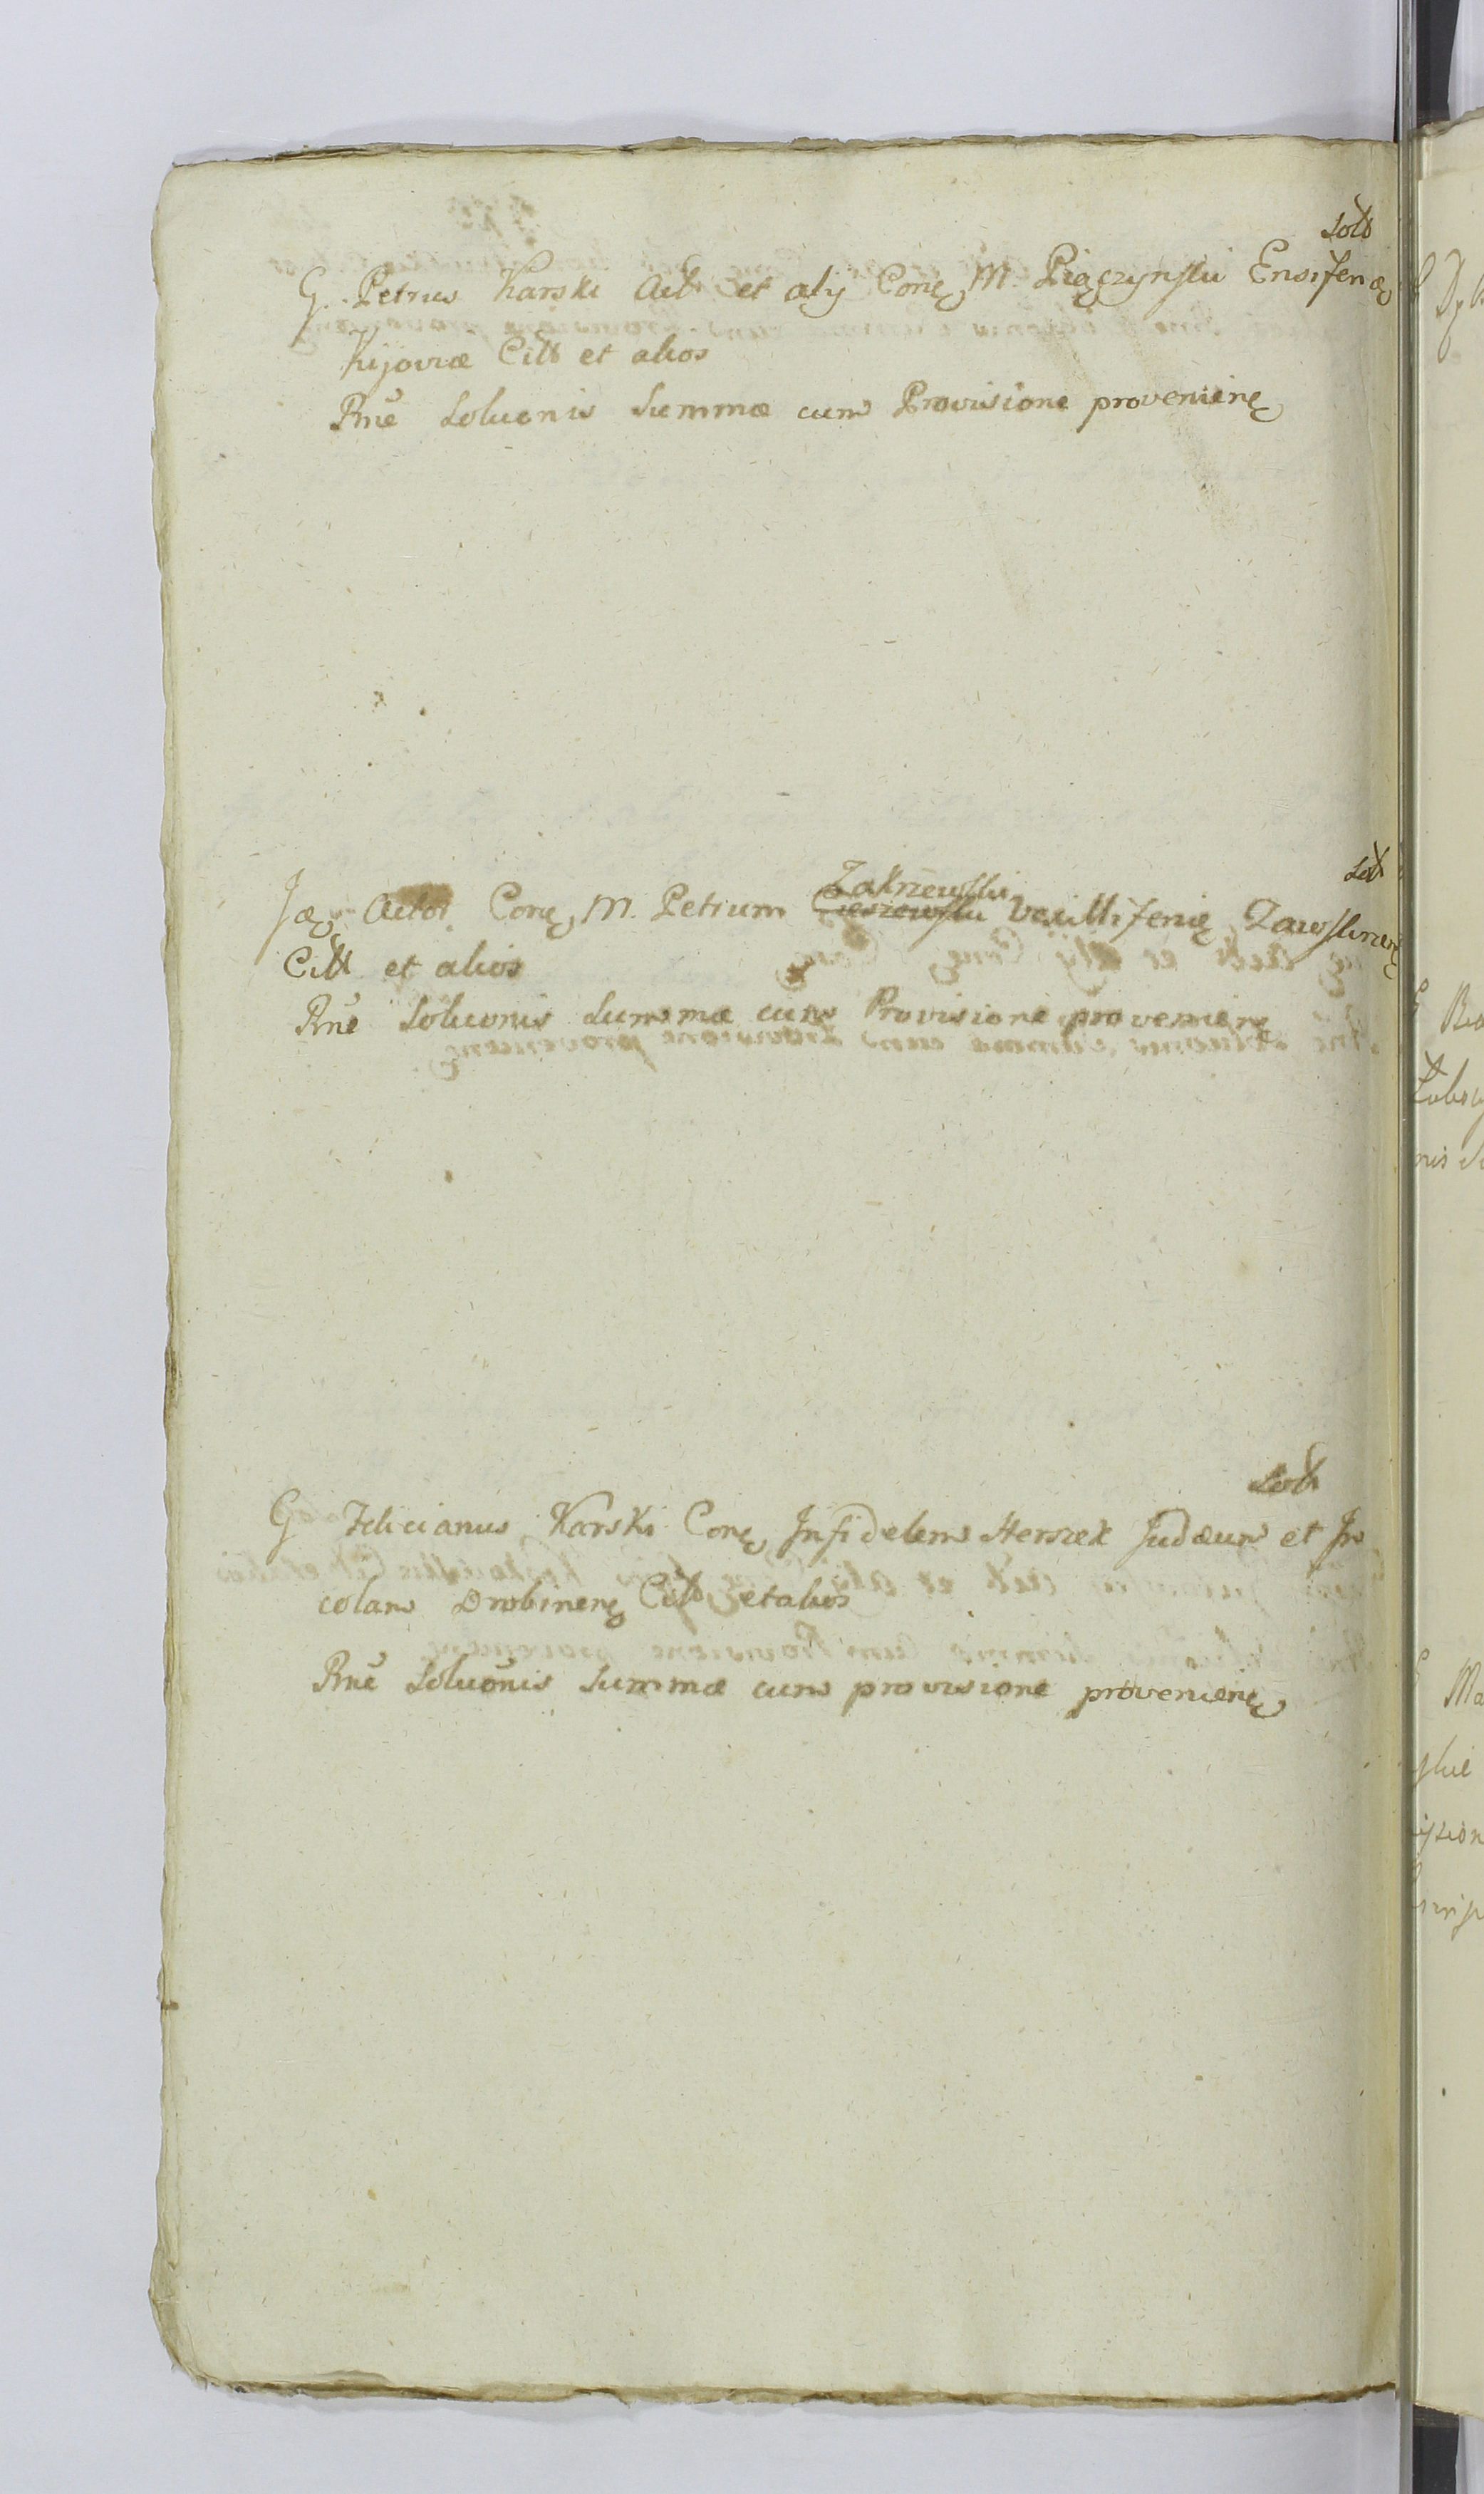 Solt
G. Petrus Karski Act et alij Conę M. Pięczynski Ensiferę
Kijoviæ Citt et alios
Rnē Soluonis Summæ cum Provisione provenienę
Solt
Jæ Actor Conę M. Petrum Cieszewski Zakrzewski Vexilliferię Zawskrzenę
Citt et alios
Rnē Soluonis Summæ cum Provisione provenienę
Solt
G Felicianus Karski Conę Infidelem Herszek Judæum et In
colam Drobinenę Citt et alios
Rnē Soluōnis Summæ cum provisione provenienę